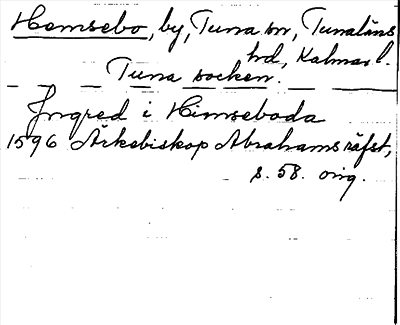 Hemsebo, by, Tuna sn, Tunaläns
hd, Kalmar l.
Tuna socken.
Ingred i Himseboda
1596 Ärkebiskop Abrahams räfst,
s. 58. orig.